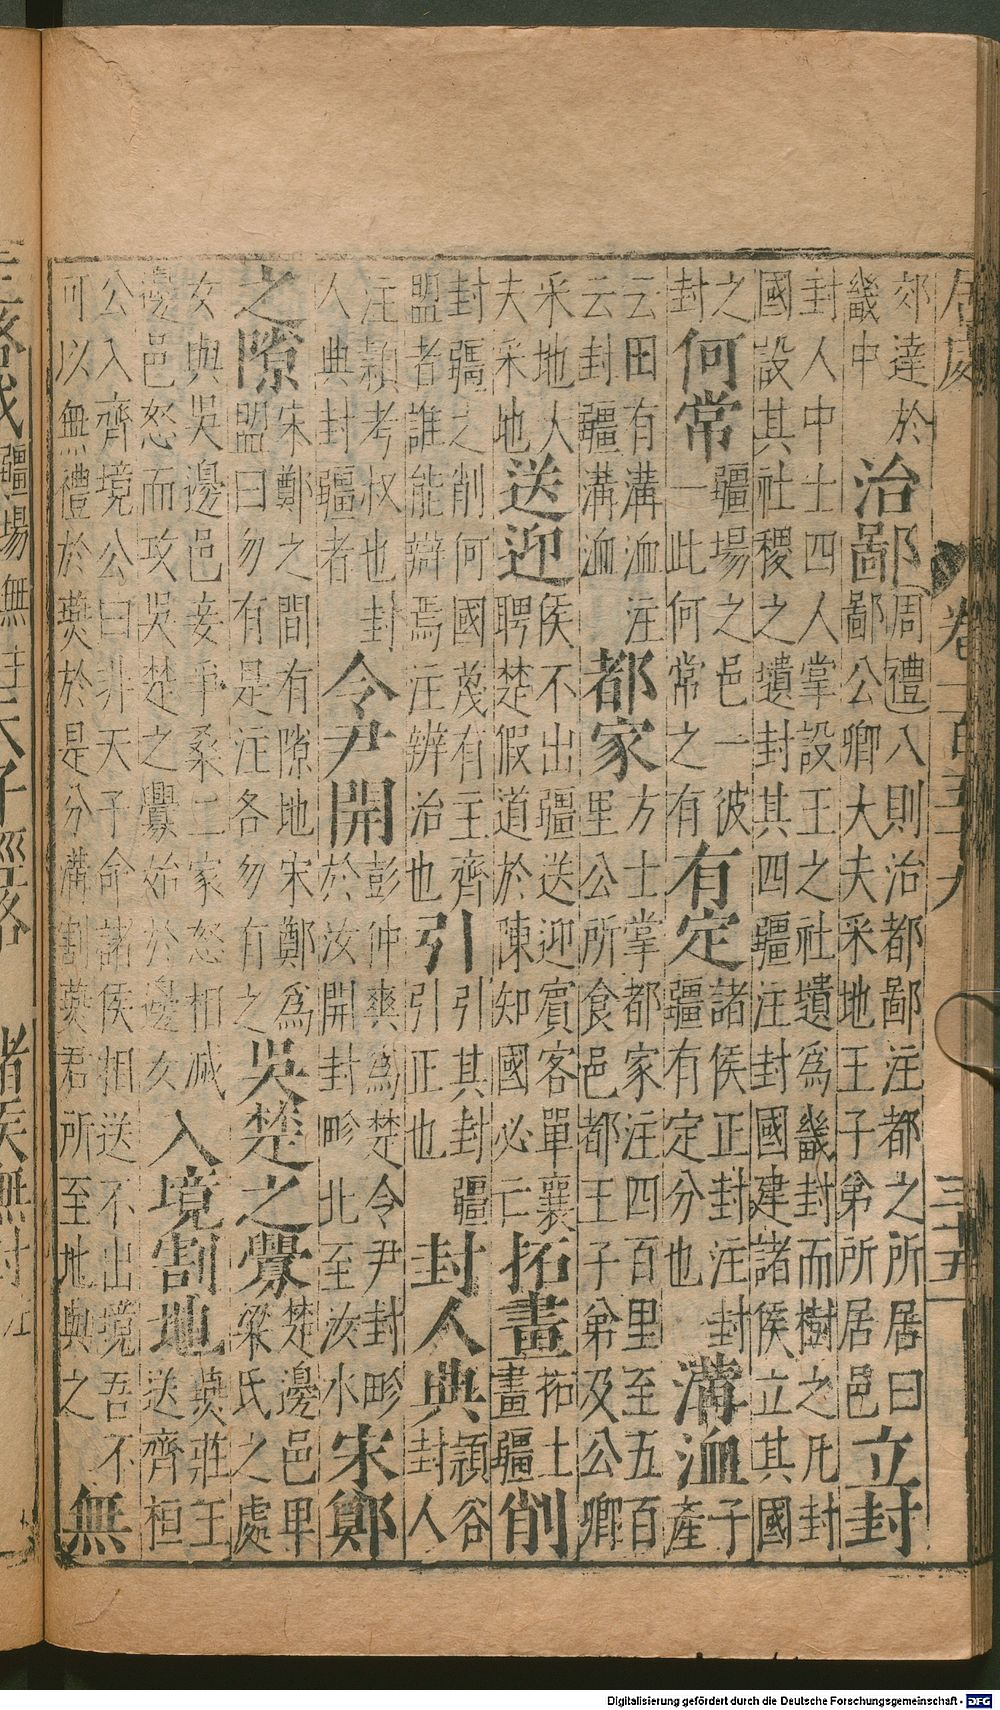 居處
郊達於
畿中
治鄙
周禮入則治都鄙注都之所居曰
鄙公卿大夫采地王子弟所居邑
立封
封人中士四人掌設王之社壝為畿封而樹之凡封
國設其社稷之壝封其四疆注封國建諸侯立其國
之
封
何常
疆場之邑一彼
一此何常之有
有定
諸侯正封注封
疆有定分也
溝洫
子
產
云田有溝洫注
云封疆溝洫
都家
方士掌都家注四百里至五百
里公所食邑都王子弟及公卿
采地大
夫采地
送迎
侯不出疆送迎賓客單襄
聘楚假道於陳知國必亡
拓畫
拓土
畫疆
削
封疆之削何國蔑有主齊
盟者誰能辯焉注辨治也
引
引其封疆
引正也
封人典
潁谷
封人
注潁考叔也封
人典封疆者
令尹開
彭仲爽為楚令尹封畛
於汝開封畛北至汝水
宋鄭
之隙
宋鄭之間有隙地宋鄭為
盟曰勿有是注各勿有之
吳楚之釁
楚邊邑卑
梁氏之處
女與吳邊邑妾爭桑二家怒相滅
邊邑怒而攻吳楚之釁始於邊女
入境割地
燕莊王
送齊桓
公入齊境公曰非天子命諸侯相送不出境吾不
可以無禮於燕於是分溝割燕君所至地與之
無
Digitalisierung gefördert durch die Deutsche Forschungsgemeinschaft - DFG